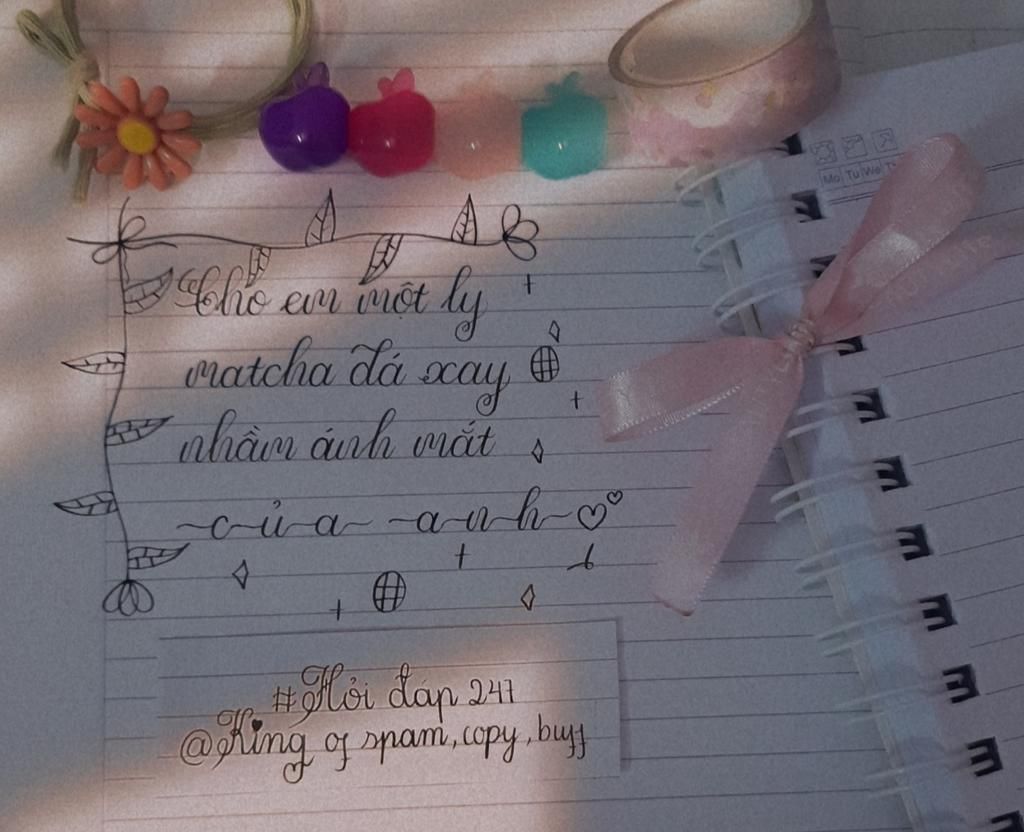 Mo Tu We
Cho em một ly
matcha đá xay
nhầm ánh mắt
~c~ủ~a~ ~a~n~h~
#Hỏi đáp 247
@King of spam, copy, buff